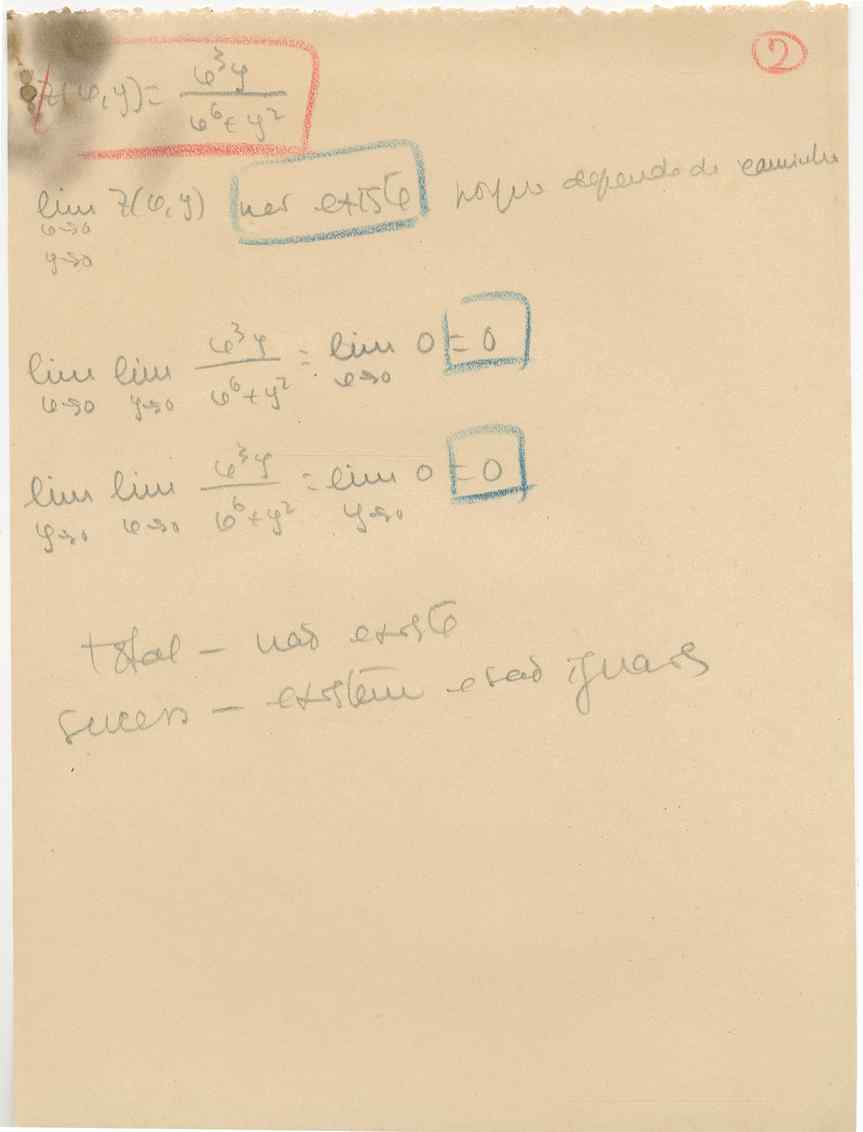 2
z(x,y) = x³y / x⁶+y²
lim z(x,y) não existe porque depende do caminho
x→0
y→0
lim lim x³y / x⁶+y² = lim 0 = 0
x→0 y→0 x→0
lim lim x³y / x⁶+y² = lim 0 = 0
y→0 x→0 y→0
total – não existe
sucess – existem e são iguais